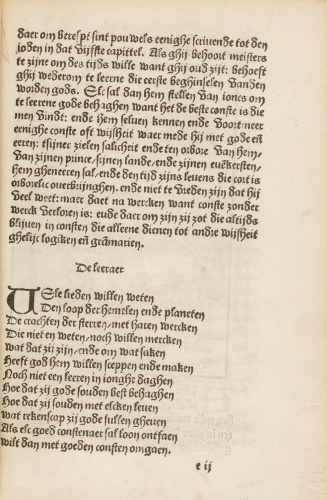 daer om berespt sint pouwels eenighe scriuende tot den
joden in dat vijfste capittel. Als ghij behoort meisters
te zijne om des tijds wille want ghij oud zijt: behoeft
ghij wederom te leerne die eerste beghinselen vanden
worden gods. Elc sal dan hem stellen van joncs om
te leerene gode behaghen want het de beste conste is die
men vindt: ende hem seluen kennen ende voort meer
eenighe conste oft wijsheit waer mede hij met gode eñ
eeren: tsijner zielen salicheit ende ten orbore van hem/
van zijnen prince/sijnen lande/ende zijnen euekersten/
hem gheneeren sal/ende den tijd zijns leuens die cort is
orborelic ouerbrijnghen. ende niet te vreden zijn dat hij
veel weet: maer daer na wercken want conste zonder
werck verloren is: ende daer om zijn zij zot die altijds
blijuen in consten die alleene dienen tot andre wijsheit
ghelijc logiken eñ gramarien.
De leeraer
Ule lieden willen weten
Den loop der hemelen ende planeten
De crachten der sterren/met haren wercken
Die niet en weten/noch willen mercken
wat dat zij zijn/ende om wat saken
Heeft god hem willen sceppen ende maken
Noch niet en leeren in ionghe daghen
Hoe dat zij gode souden best behaghen
Hoe dat zij souden met elcken leuen
wat rekenscap zij gode sullen gheuen
Als elc goed constenaer sal loon ontfaen
wilt dan met goeden consten omgaen.
e ij